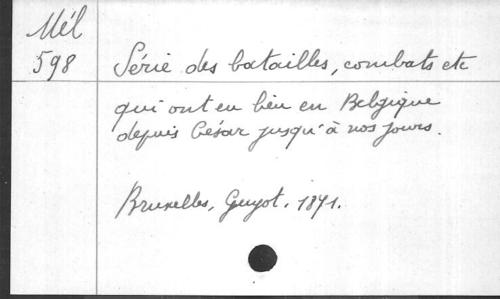 Mél
598
Série des batailles, combats etc
qui ont eu lieu en Belgique
depuis César jusqu'à nos jours.
Bruxelles, Guyot. 1871.